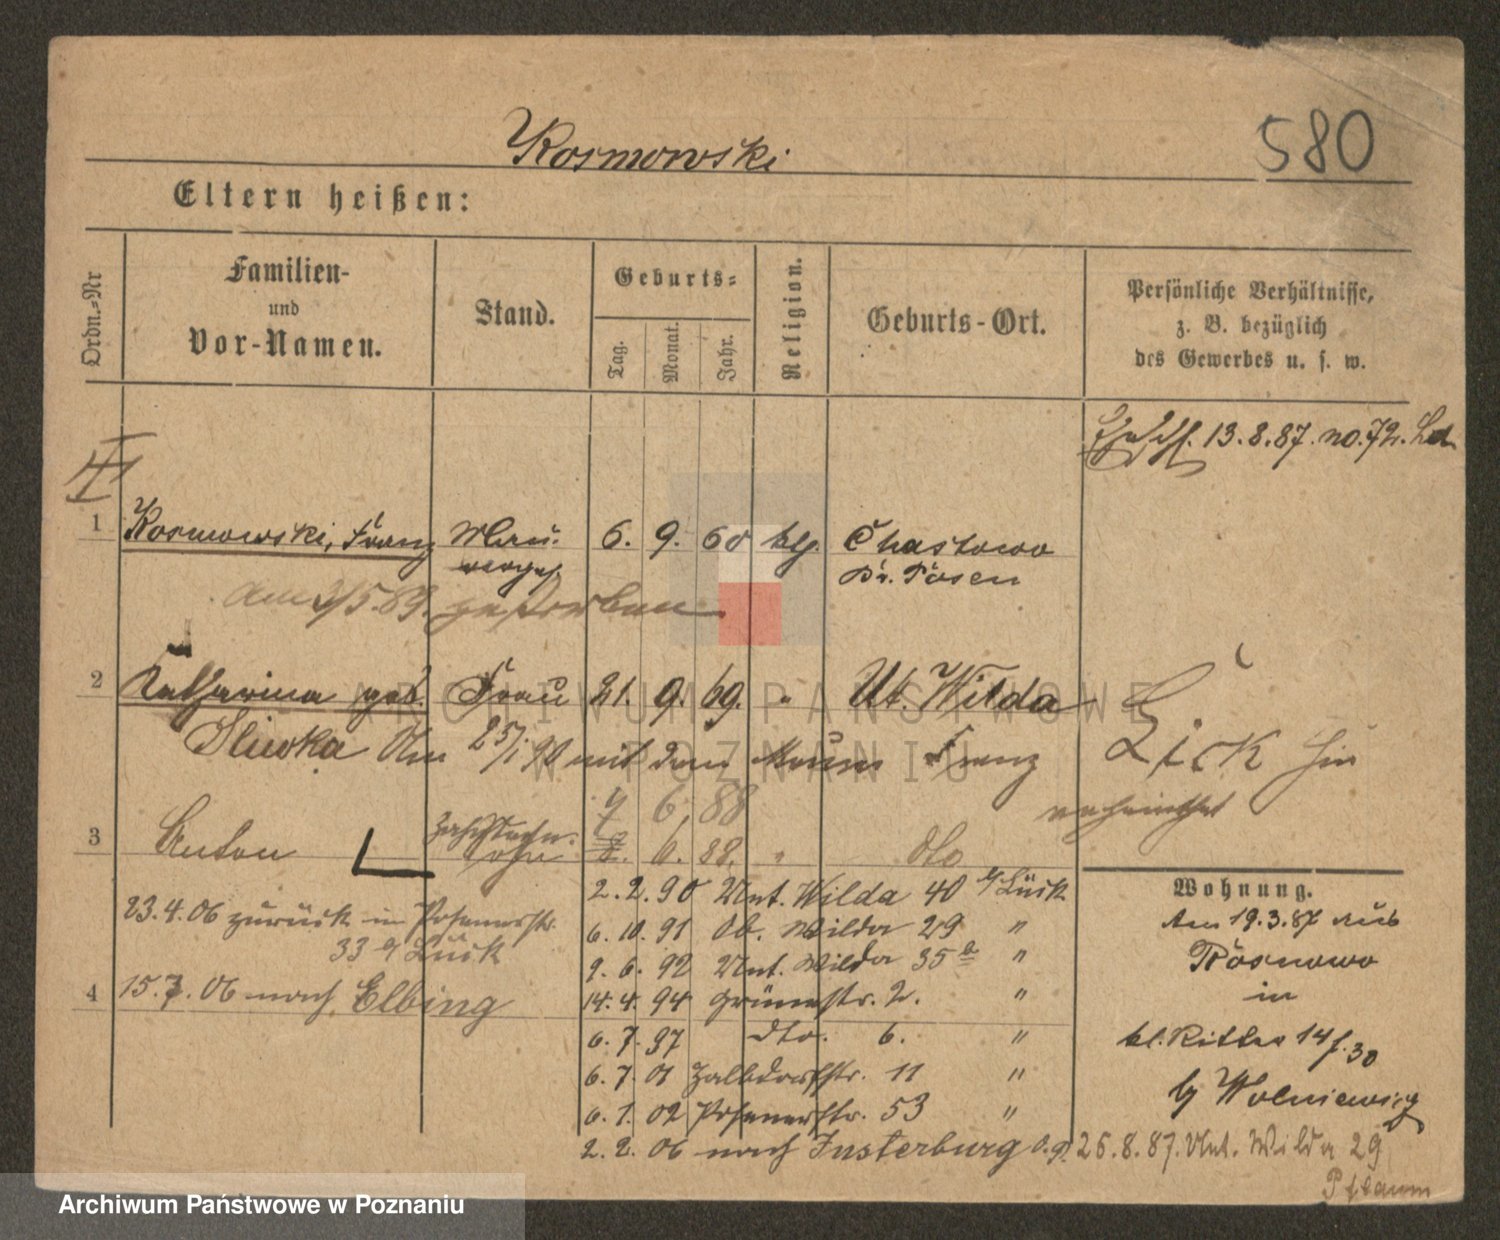 Kosmowski
580
Eltern heißen:
Ordn.-Nr
Familien-
und
Vor-Namen.
Stand.
Geburts-
Tag.
Monat.
Jahr.
Religion.
Geburts-Ort.
Persönliche Verhältnisse,
z. B. bezüglich
des Gewerbes u. s. w.
13.8.87. no.72.
1
Kosmowski, Franz
Mau-
rerges.
6. 9. 60
ktg.
Chastowo
Kr. Posen
gestorben
2
Katharina geb. Frau 21. 9. 69. " Ut. Wilda
Sliwka Am 25/1 90 mit dem Maurer Franz Lück hier
verheirathet
7 6. 88
3
Anton
sohn
8. 6. 88. " dto
2.2.90 Unt. Wilda 40 b/Lück
6.10.91 Ob. Wilda 29 "
9.6.92 Unt. Wilda 35a "
14.4.94 Grünestr. 2. "
6.7.97 dto. 6. "
6.7.01 11 "
6.1.02 Posenerstr. 53 "
2.2.06 nach Insterburg
23.4.06 zurück in Posenerstr.
33 b/Lück
4
15.7.06 nach Elbing
Wohnung.
Am 19.3.87 aus
Posnowo
in
kl. Ritter 14
by Wolniewicz
26.8.87. Unt. Wilda 29
ARCHIWUM PAŃSTWOWE
W POZNANIU
Archiwum Państwowe w Poznaniu